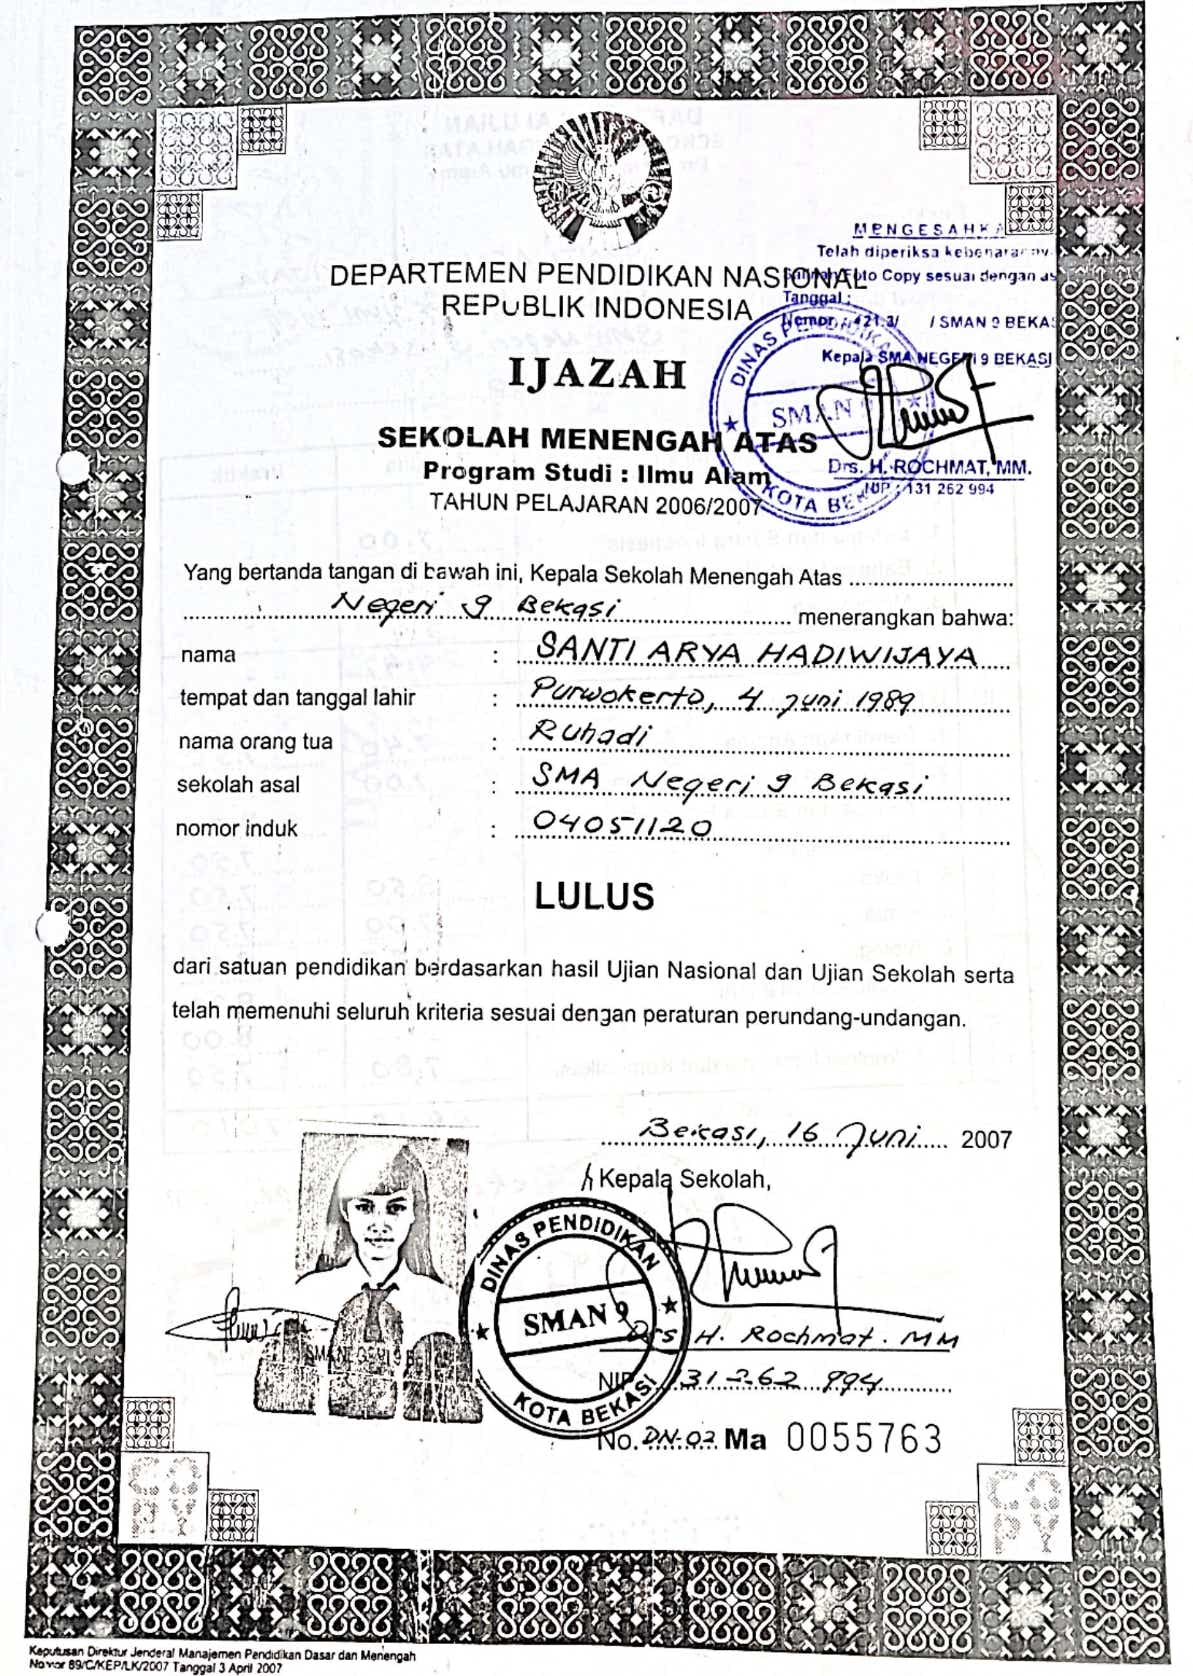 MENGESAHKA
Telah diperiksa kebenarannya
Foto Copy sesuai dengan as
Tanggal :
Nomor : 421.3/ / SMAN 9 BEKAS
Kepala SMA NEGERI 9 BEKASI
DINAS PENDIDIKAN
SMAN 9
KOTA BEKASI
Drs. H. ROCHMAT, MM.
NIP : 131 262 994
DEPARTEMEN PENDIDIKAN NASIONAL
REPUBLIK INDONESIA
IJAZAH
SEKOLAH MENENGAH ATAS
Program Studi : Ilmu Alam
TAHUN PELAJARAN 2006/2007
Yang bertanda tangan di bawah ini, Kepala Sekolah Menengah Atas
Negeri 9 Bekasi menerangkan bahwa:
nama : SANTI ARYA HADIWIJAYA
tempat dan tanggal lahir : Purwokerto, 4 Juni 1989
nama orang tua : Ruhadi
sekolah asal : SMA Negeri 9 Bekasi
nomor induk : 04051120
LULUS
dari satuan pendidikan berdasarkan hasil Ujian Nasional dan Ujian Sekolah serta
telah memenuhi seluruh kriteria sesuai dengan peraturan perundang-undangan.
Bekasi, 16 Juni 2007
Kepala Sekolah,
DINAS PENDIDIKAN
SMAN 9
KOTA BEKASI
Drs H. Rochmat. MM
NIP 131 262 994
No. DN-02 Ma 0055763
COPY
COPY
Keputusan Direktur Jenderal Manajemen Pendidikan Dasar dan Menengah
Nomor 89/C/KEP/LK/2007 Tanggal 3 April 2007